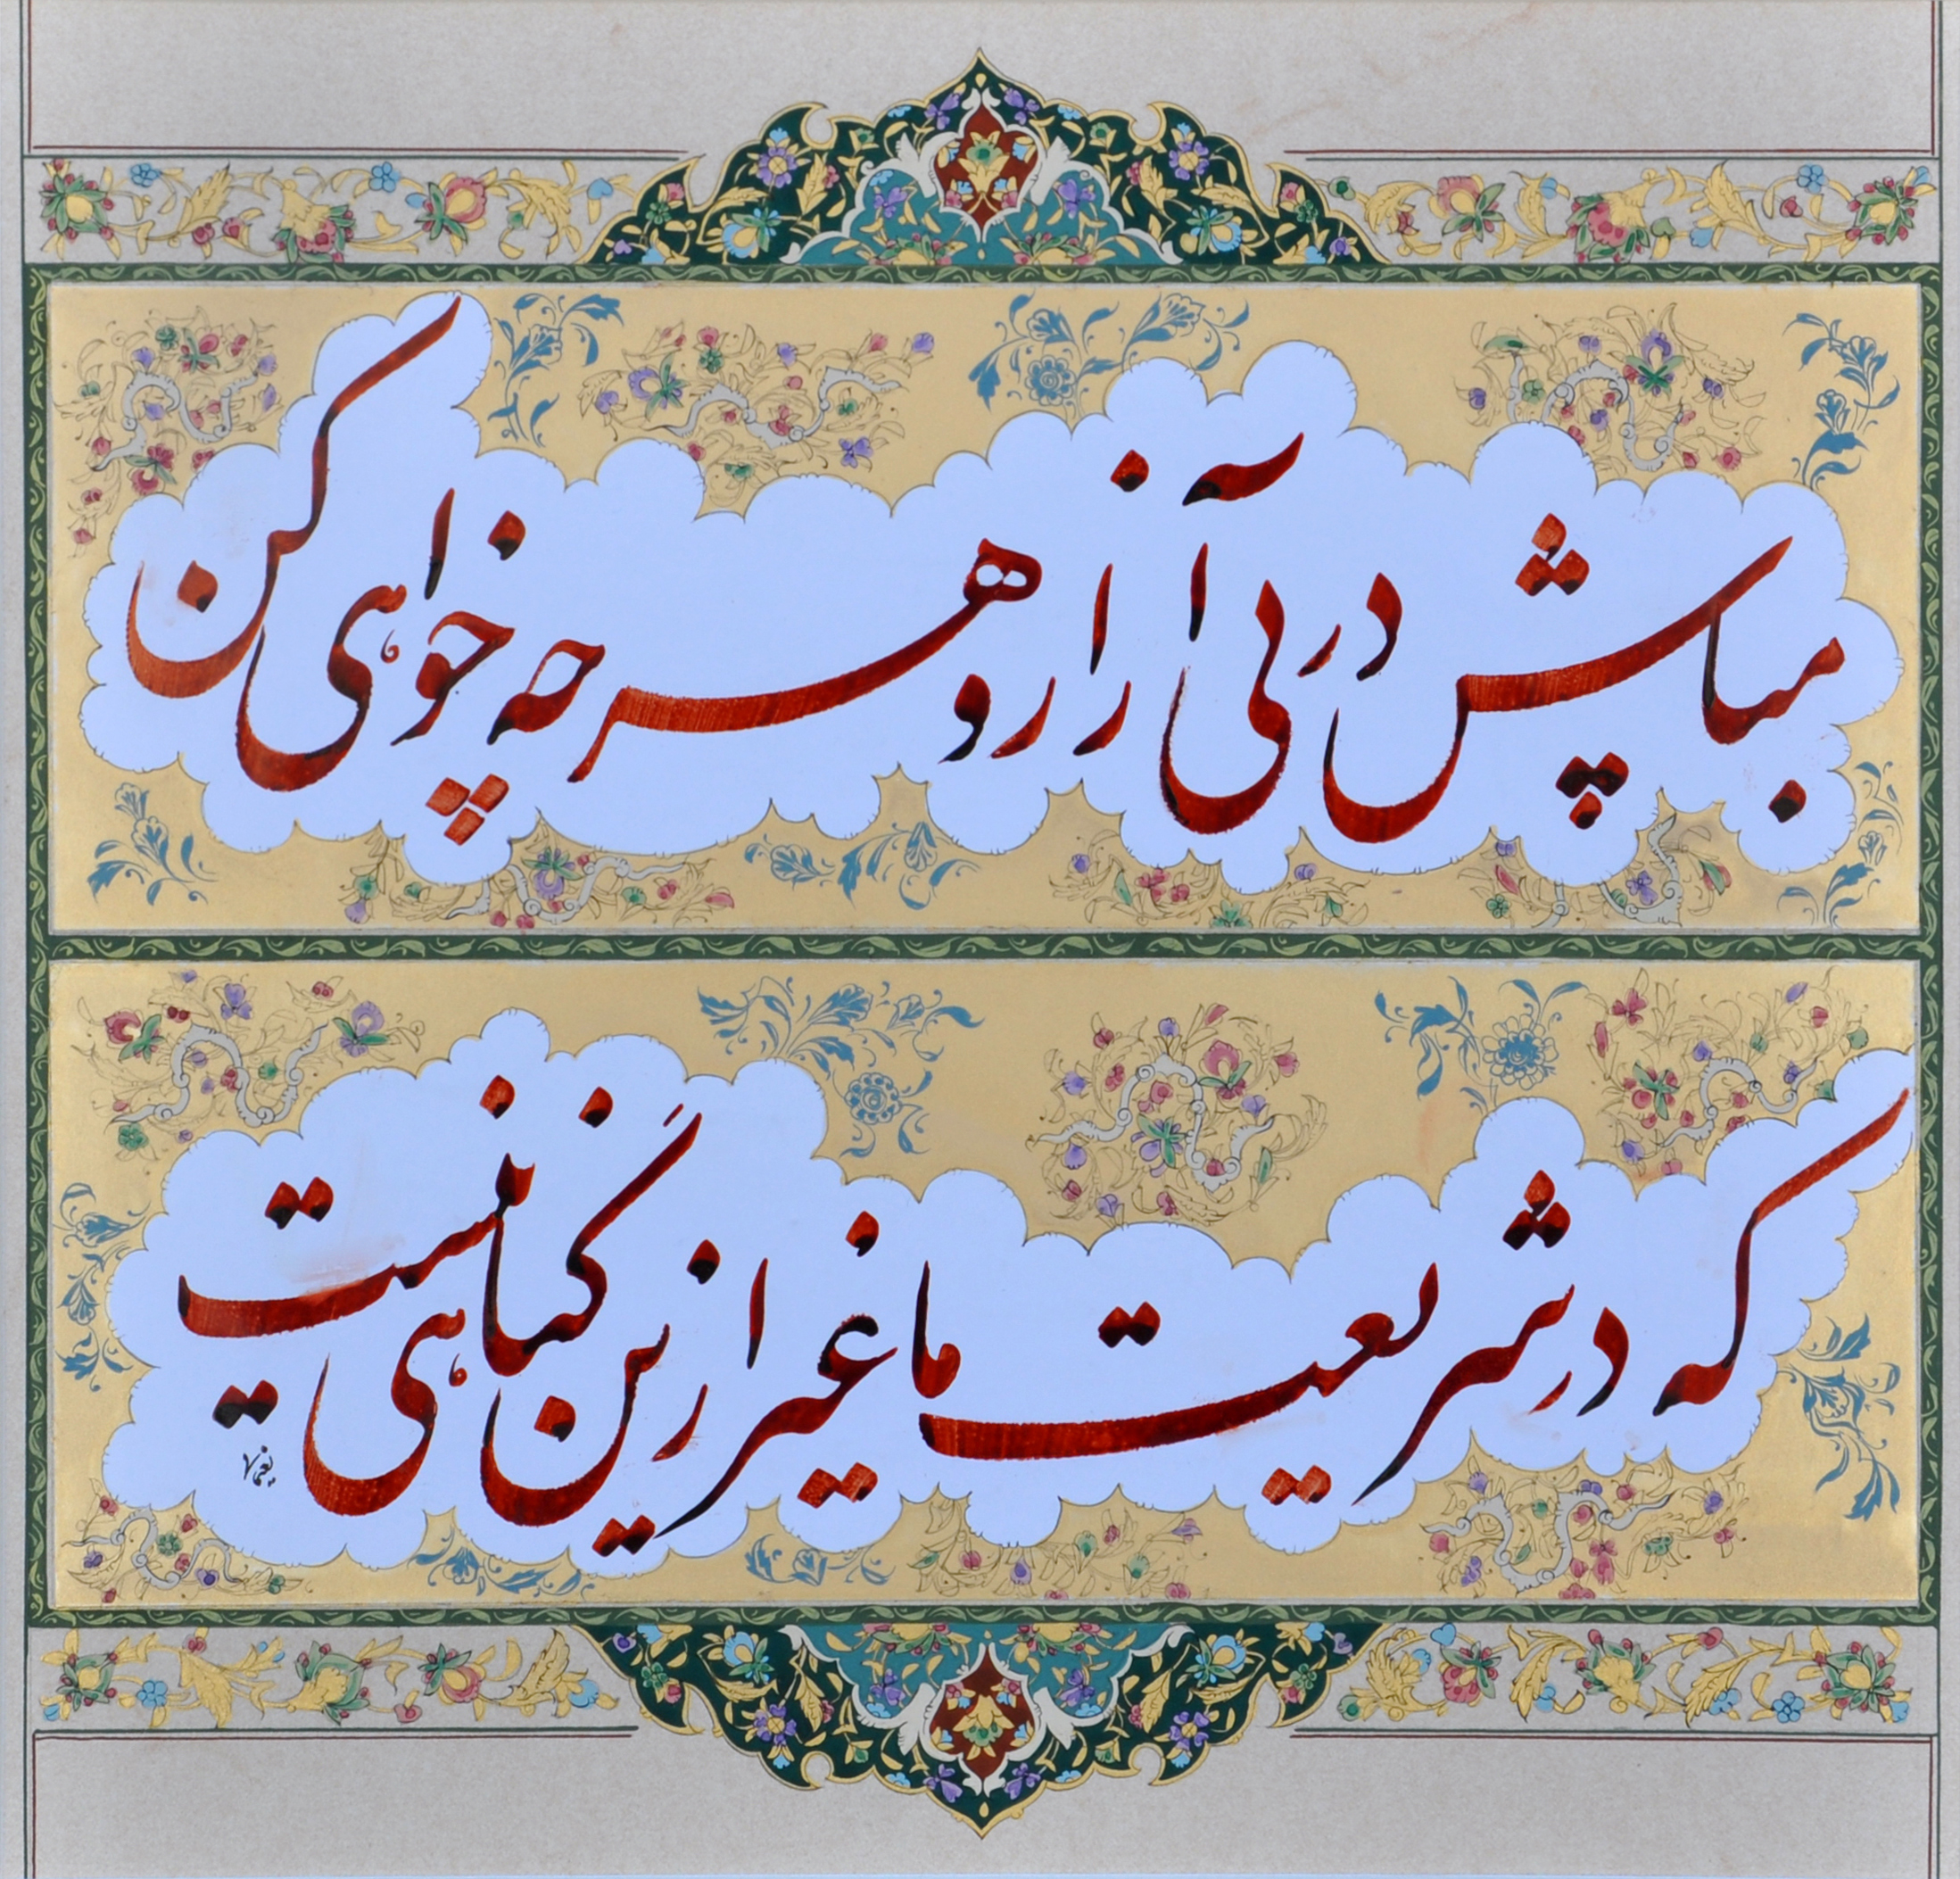 مباش در پی آزار و هر چه خواهی کن
که در شریعت ما غیر از این گناهی نیست